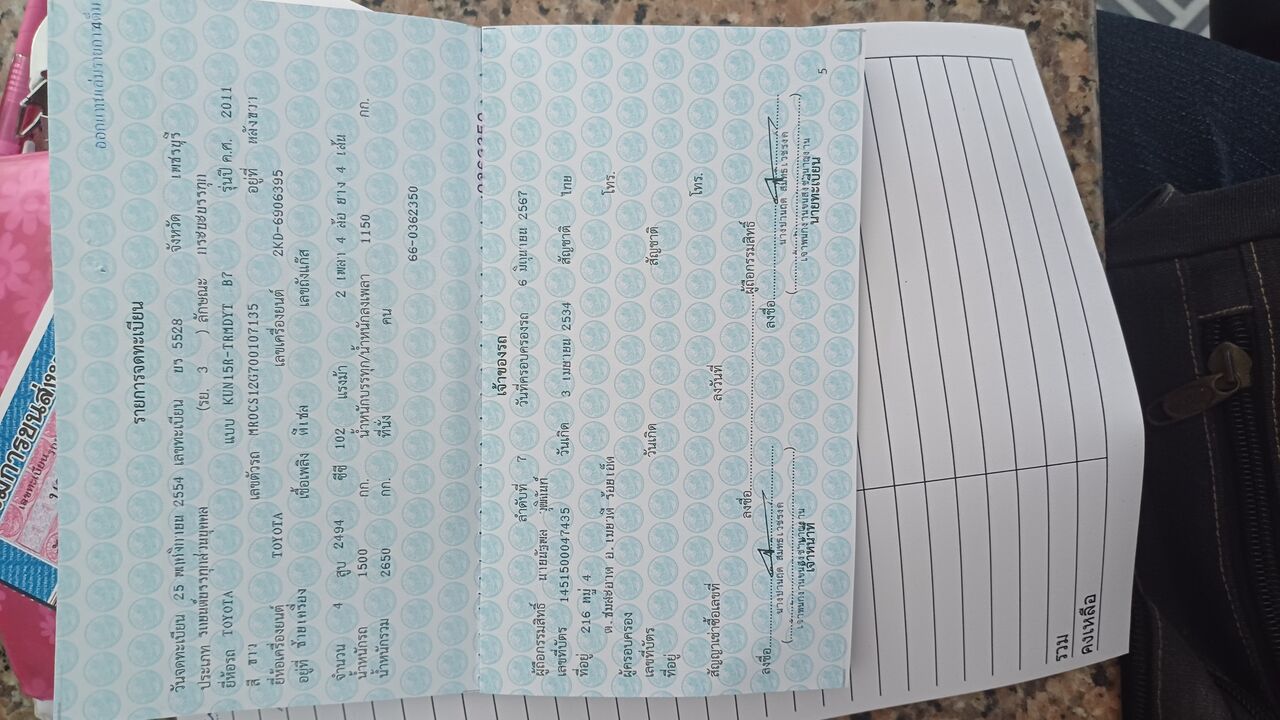 ออกแทนเล่มรายการเต็ม
รายการจดทะเบียน
วันจดทะเบียน 25 พฤศจิกายน 2554 เลขทะเบียน ยร 5528 จังหวัด เพชรบุรี
ประเภท รถยนต์บรรทุกส่วนบุคคล (รย. 3 ) ลักษณะ กระบะบรรทุก
ยี่ห้อรถ TOYOTA แบบ KUN15R-TRMDYT B7 รุ่นปี ค.ศ. 2011
สี ขาว เลขตัวรถ MR0CS12G700107135 อยู่ที่ หลังขวา
ยี่ห้อเครื่องยนต์ TOYOTA เลขเครื่องยนต์ 2KD-6906395
อยู่ที่ ซ้ายเครื่อง เชื้อเพลิง ดีเซล เลขถังแก๊ส
จำนวน 4 สูบ 2494 ซีซี 102 แรงม้า 2 เพลา 4 ล้อ ยาง 4 เส้น
น้ำหนักรถ 1500 กก. น้ำหนักบรรทุก/น้ำหนักลงเพลา 1150 กก.
น้ำหนักรวม 2650 กก. ที่นั่ง คน
66-0362350
เจ้าของรถ
ลำดับที่ 7 วันที่ครอบครองรถ 6 มิถุนายน 2567
ผู้ถือกรรมสิทธิ์
เลขที่บัตร 1451500047435 วันเกิด 3 เมษายน 2534 สัญชาติ ไทย
ที่อยู่ 216 หมู่ 4 โทร.
ต. ชมสะอาด อ. เมยวดี ร้อยเอ็ด
ผู้ครอบครอง
เลขที่บัตร วันเกิด สัญชาติ
ที่อยู่ โทร.
สัญญาเช่าซื้อเลขที่ ลงวันที่
ลงชื่อ ผู้ถือกรรมสิทธิ์
ลงชื่อ ลงชื่อ
เจ้าหน้าที่ นายทะเบียน
5
รวม
คงเหลือ
กรมการขนส่งทางบก
เลขทะเบียน